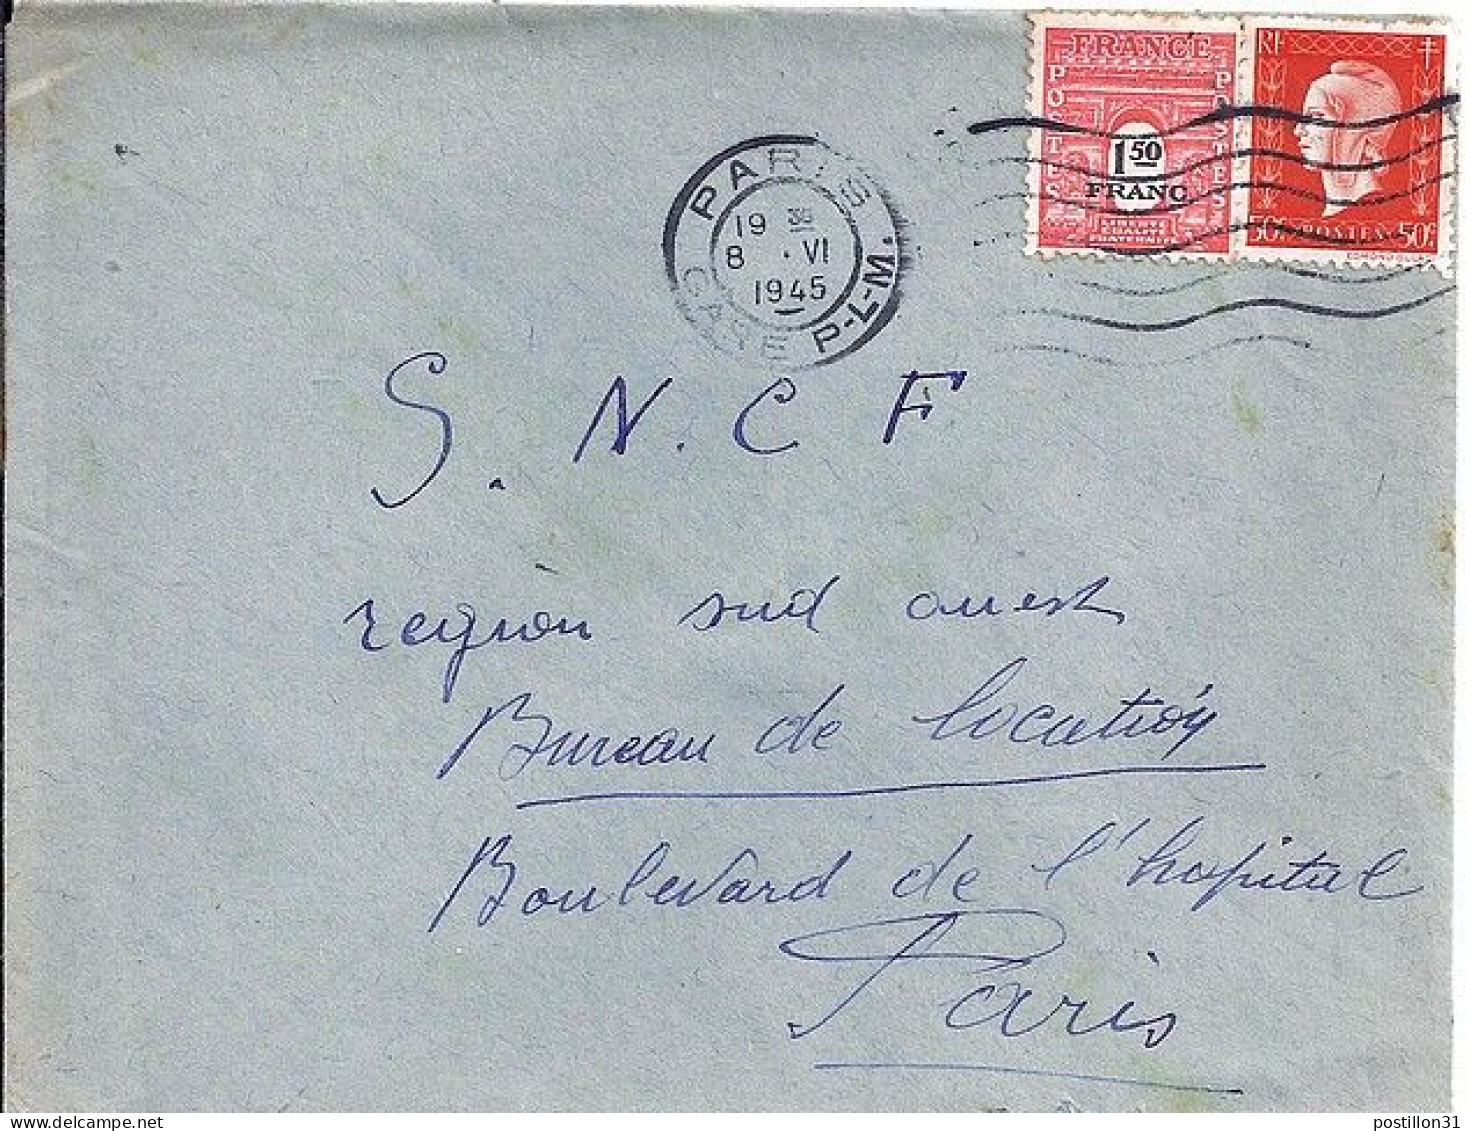 FRANCE
POSTES
POSTES
1 50
FRANC
LIBERTÉ
EGALITÉ
FRATERNITÉ
RF
50c. POSTES 50c.
PARIS
19 30
8 . VI
1945
GARE P-L-M.
S. N. C F
region sud ouest
Bureau de location
Boulevard de l'hopital
Paris
postillon31